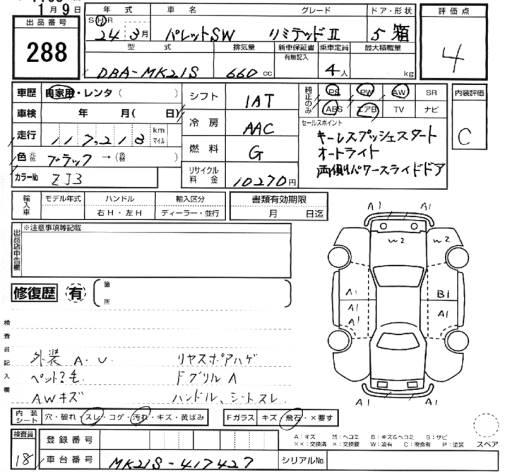 1月9日
年式 車名 グレード ドア・形状 評価点
出品番号 288
SHR 24年3月 パレットSW リミテッドⅡ 5 箱 4
型式 排気量 新車保証書 有無記入 乗車定員 最大積載量
DBA-MK21S 660cc 4人 kg
車歴 自家用・レンタ( ) シフト IAT 純正のみ PS PW AW SR 内装評価
車検 年 月( 日) ABS エアB TV ナビ C
冷房 AAC セールスポイント
走行 117,218 km マイル キーレスプッシュスタート
燃料 G オートライト
色 元色 ブラック → (色替) 両側パワースライドドア
カラーNo ZJ3 リサイクル料金 10270円
輸入車 モデル年式 ハンドル 輸入区分 書類有効期限
右H・左H ディーラー・並行 月 日迄
出品店申告欄 ※注意事項等記載
A1 A1
W2 W2
A1 A1
A1 B1
A1 A1
A1 A1
修復歴 有 箇所
検査員記入欄
外装 A.U リヤスポアハゲ
AWキズ ハンドル、シートスレ
内装シート 穴・破れ・スレ・コゲ・汚れ・キズ・黄ばみ Fガラス キズ・飛石・×要す
A:キズ M:ヘコミ B:キズ&ヘコミ S:サビ
検査員 18 登録番号
車台番号 MK21S-417427 シリアルNo